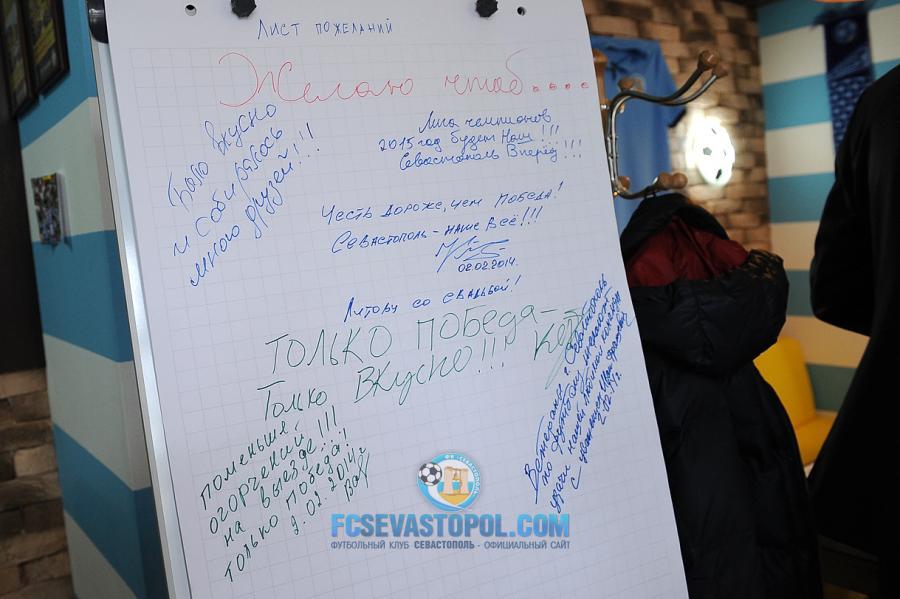 Лист пожеланий
Желаю чтоб....
Было вкусно
и собиралось
много друзей!!!
Лига чемпионов
2015 год будет наш!!!
Севастополь Вперёд!!!
Честь дороже, чем победа!
Севастополь - наше всё!!!
02.02.2014.
Литову со свадьбой!
ТОЛЬКО ПОБЕДА-
Только ВКУСНО!!!
поменьше
огорчений!!!
на выезде...
только победа!
2.02.2014г.
Ветераны г. Севастополь
по футболу
удачи нашей любимой команде
с уважением
2.02.14г.
ФК "СЕВАСТОПОЛЬ"
FCSEVASTOPOL.COM
ФУТБОЛЬНЫЙ КЛУБ СЕВАСТОПОЛЬ - ОФИЦИАЛЬНЫЙ САЙТ